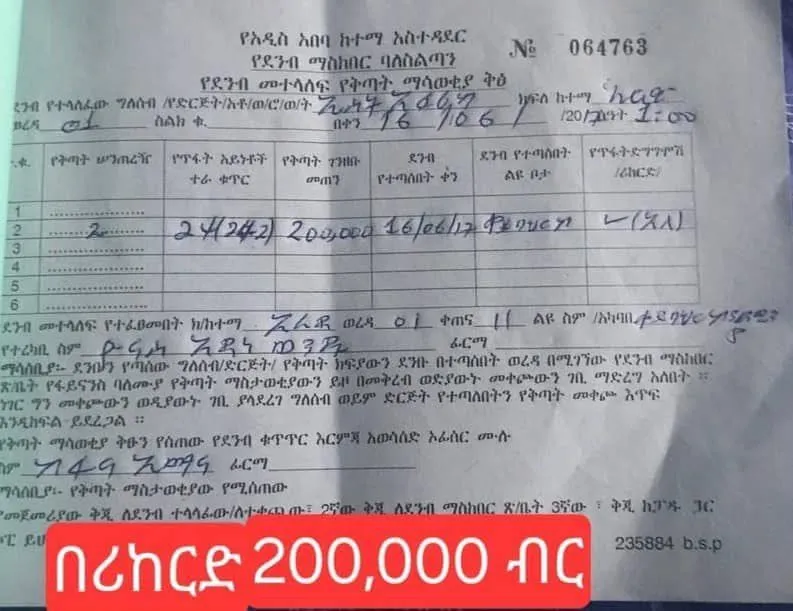 የአዲስ አበባ ከተማ አስተዳደር
የደንብ ማስከበር ባለስልጣን
№ 064763
የደንብ መተላለፍ የቅጣት ማሳወቂያ ቅፅ
ደንብ የተላለፈው ግለሰብ /የድርጅት/አቶ/ወ/ሮ/ወ/ት ክፍለ ከተማ
ወረዳ 01 ስልክ ቁ. በቀን 16/06/ /2017 ሰዓት 1:00
ተ.ቁ. የቅጣት ሠንጠረዥ የጥፋት አይነቶች ተራ ቁጥር የቅጣት ገንዘቡ መጠን ደንብ የተጣሰበት ቀን ደንብ የተጣሰበት ልዩ ቦታ የጥፋት ድግግሞሽ /ሪከርድ/
1
2 2 24(242) 200,000 16/06/17
3
4
5
6
ደንብ መተላለፍ የተፈፀመበት ክ/ከተማ አራዳ ወረዳ 01 ቀጠና 11 ልዩ ስም /አካባቢ
የተረካቢ ስም ፊርማ
ማሳሰቢያ፡- ደንቡን የጣሰው ግለሰብ/ድርጅት/ የቅጣት ክፍያውን ደንቡ በተጣሰበት ወረዳ በሚገኘው የደንብ ማስከበር
ጽ/ቤት የፋይናንስ ባለሙያ የቅጣት ማስታወቂያውን ይዞ በመቅረብ ወድያውኑ መቀጮውን ገቢ ማድረግ አለበት ።
ነገር ግን መቀጮውን ወዲያውኑ ገቢ ያላደረገ ግለሰብ ወይም ድርጅት የተጣለበትን የቅጣት መቀጮ እጥፍ
እንዲከፍል ይደረጋል ።
የቅጣት ማሳወቂያ ቅፁን የሰጠው የደንብ ቁጥጥር እርምጃ አወሳሰድ ኦፊሰር ሙሉ
ስም ፊርማ
ማሳሰቢያ፡- የቅጣት ማስታወቂያው የሚሰጠው
የመጀመሪያው ቅጂ ለደንብ ተላላፊው/ለተቀጪው፣ 2ኛው ቅጂ ለደንብ ማስከበር ጽ/ቤት 3ኛው ፣ ቅጂ ከፓዱ ጋር
235884 b.s.p
በሪከርድ 200,000 ብር